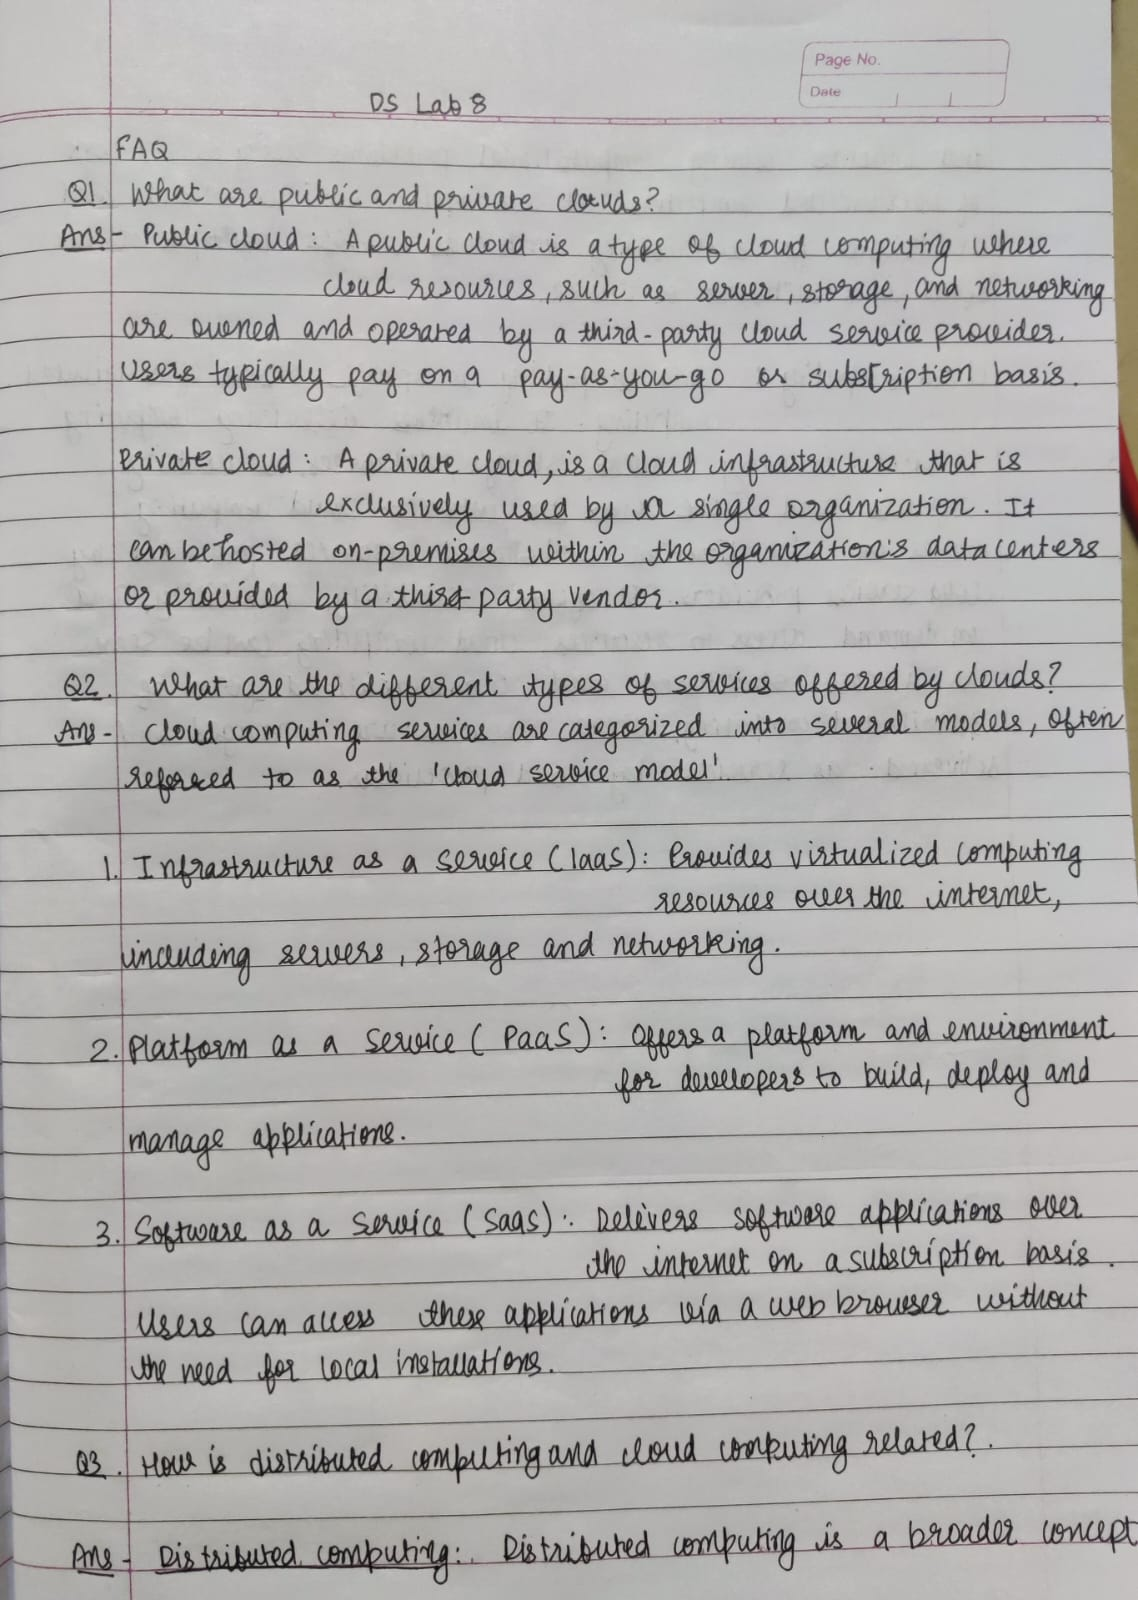 Page No.
Date
DS Lab 8
FAQ
Q1. What are public and private clouds?
Ans- Public cloud: A public cloud is a type of cloud computing where
cloud resources, such as server, storage, and networking
are owned and operated by a third-party cloud service provider.
Users typically pay on a pay-as-you-go or subscription basis.
Private cloud: A private cloud, is a cloud infrastructure that is
exclusively used by a single organization. It
can be hosted on-premises within the organization's data centers
or provided by a third party vendor.
Q2. What are the different types of services offered by clouds?
Ans- Cloud computing services are categorized into several models, often
referred to as the 'cloud service model'.
1. Infrastructure as a service (IaaS): Provides virtualized computing
resources over the internet,
including servers, storage and networking.
2. Platform as a Service (PaaS): Offers a platform and environment
for developers to build, deploy and
manage applications.
3. Software as a Service (SaaS): Delivers software applications over
the internet on a subscription basis.
Users can access these applications via a web browser without
the need for local installations.
Q3. How is distributed computing and cloud computing related?
Ans- Distributed computing: Distributed computing is a broader concept